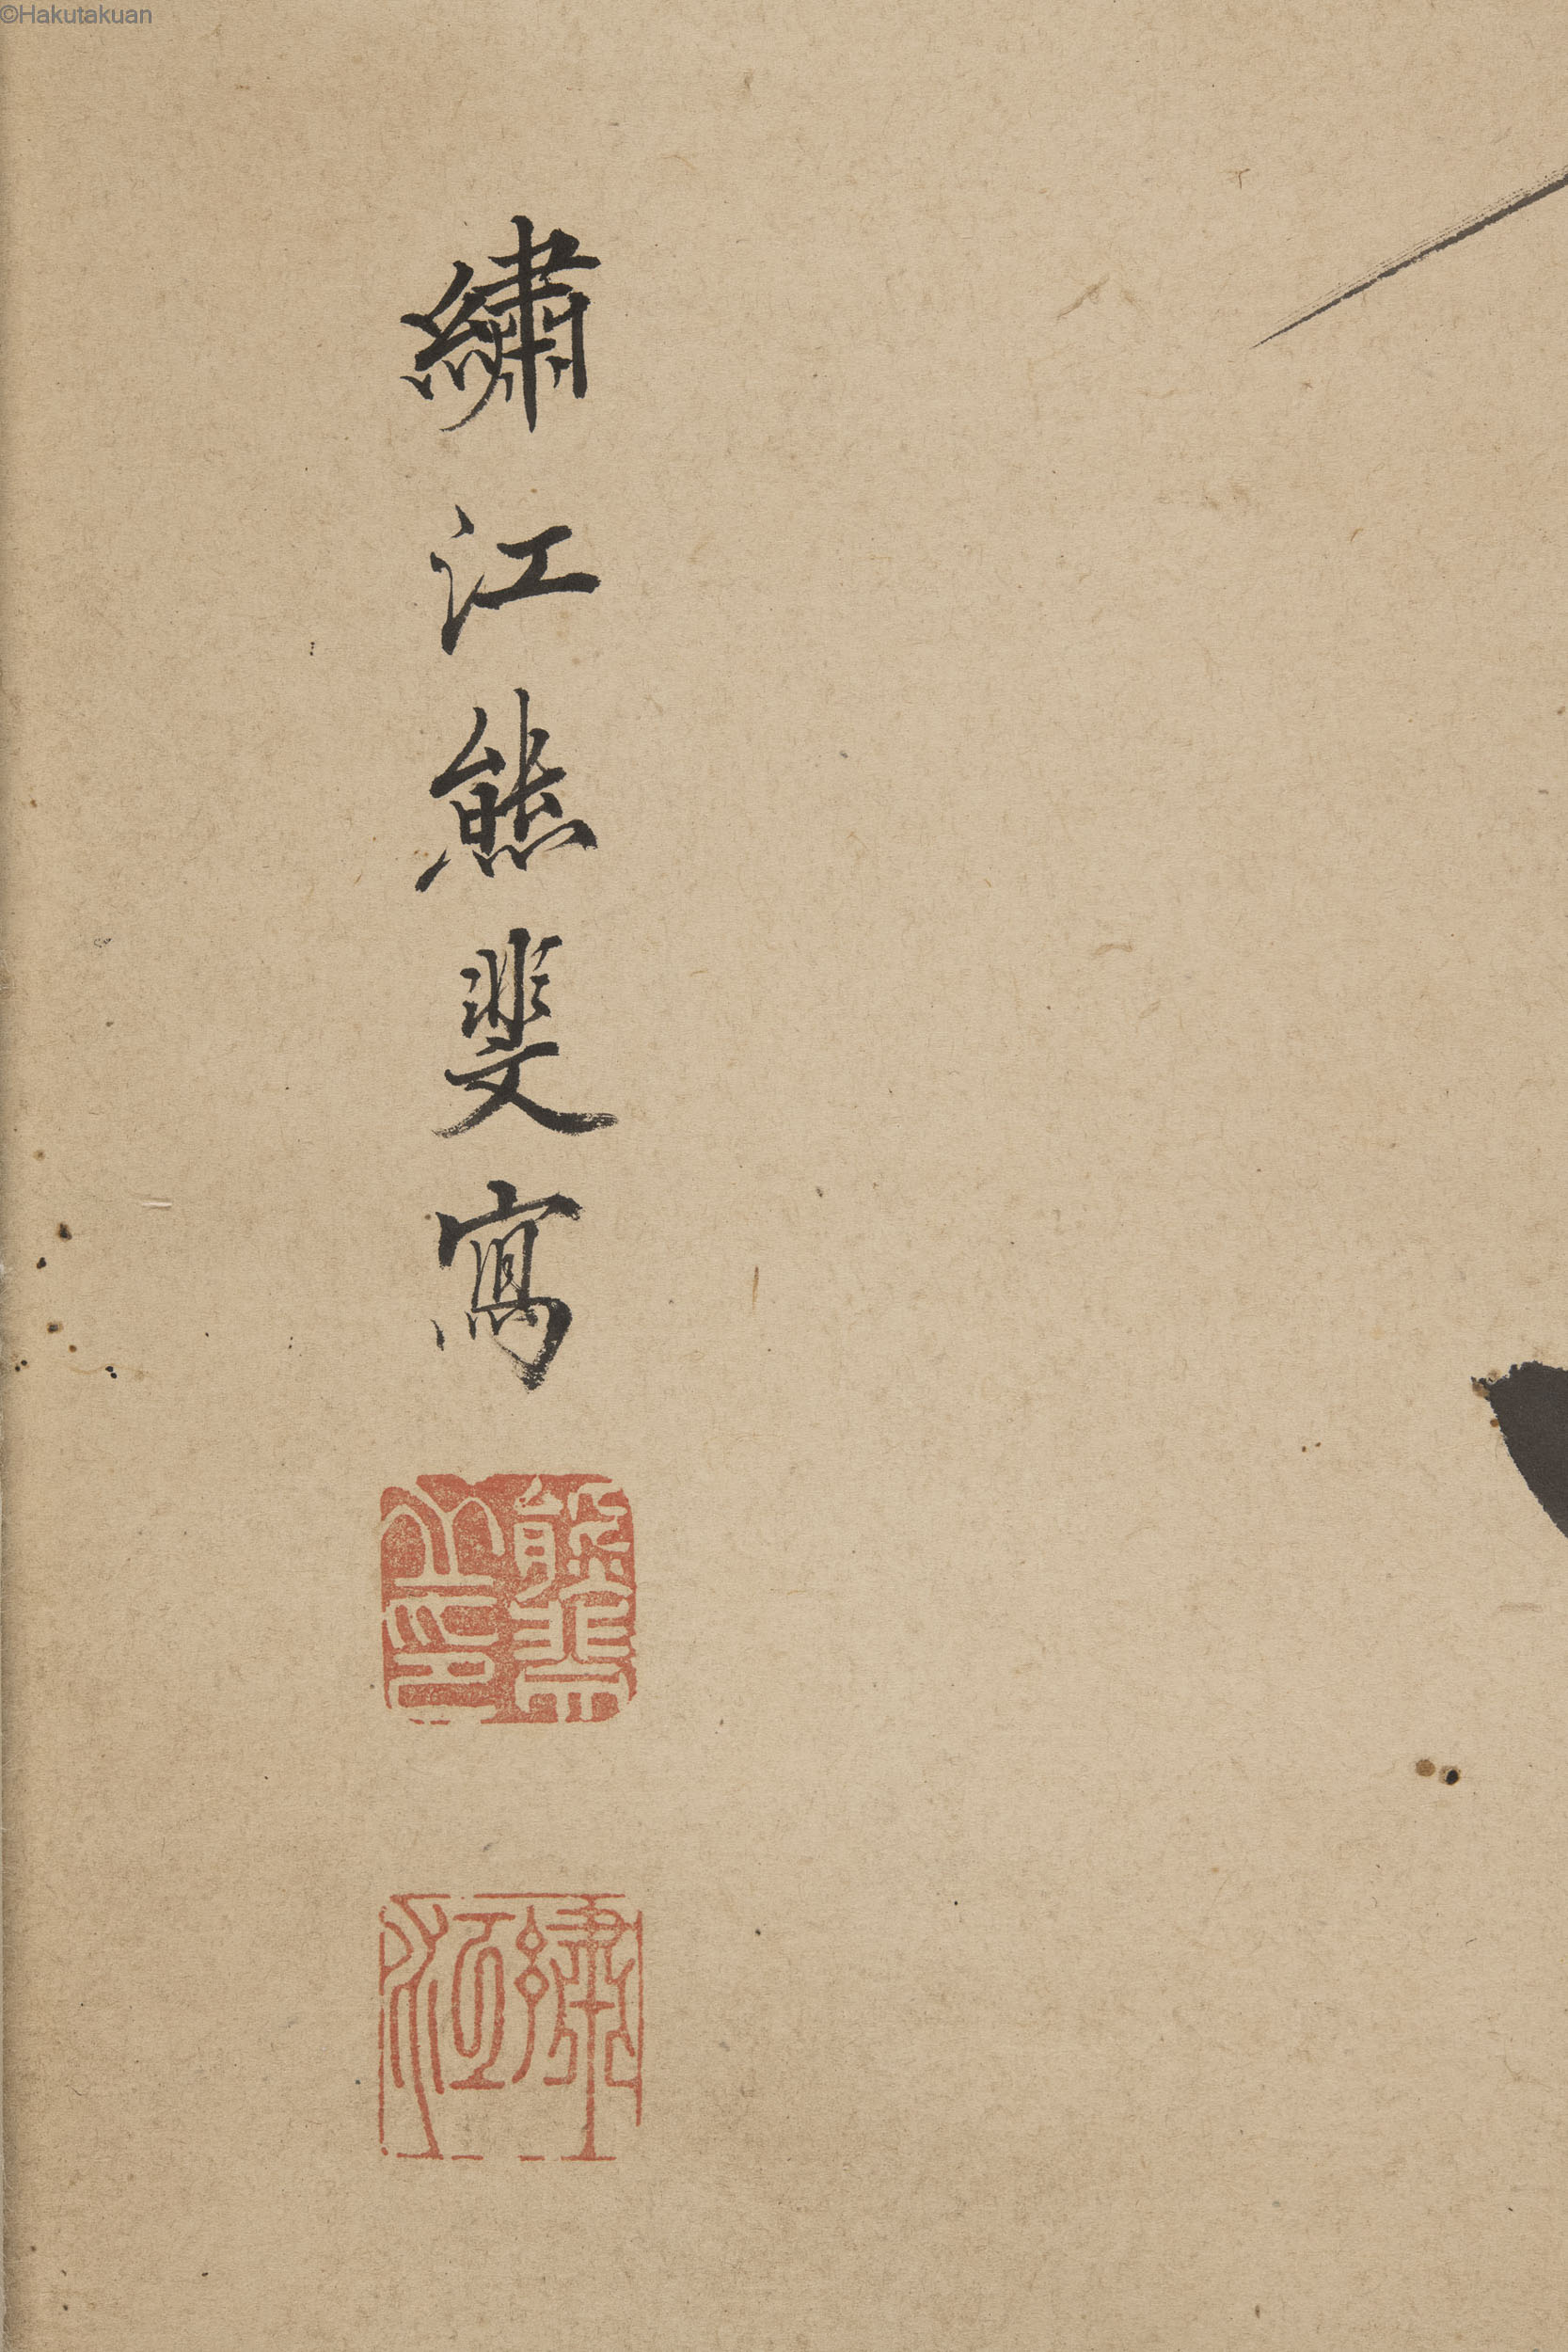 ©Hakutakuan
繡江熊斐寫
熊斐
之印
繡
江